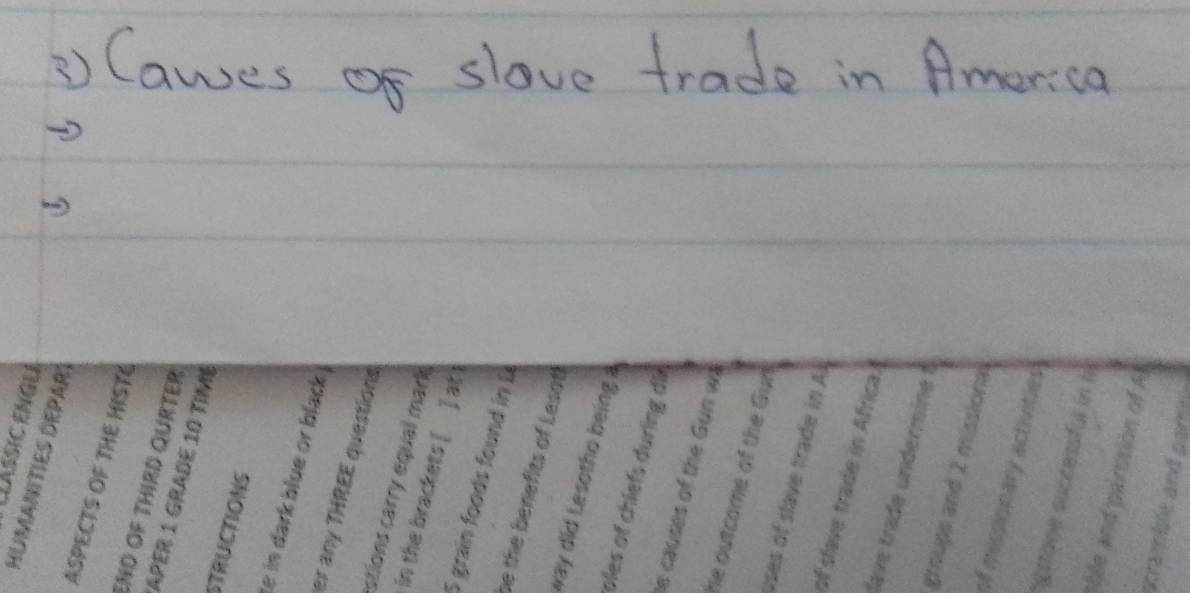 3) Causes of slave trade in America
→
→
CLASSIC ENGLI
HUMANITIES DEPAR
ASPECTS OF THE HISTO
END OF THIRD QURTER
PAPER 1 GRADE 10 TIME
STRUCTIONS
te in dark blue or black
er any THREE questions
estions carry equal mark
in the brackets [ ] at
5 grain foods found in Le
be the benefits of Lesoth
way did Lesotho being a
roles of chiefs during di
he causes of the Gun wa
he outcome of the Gun
uses of slave trade in A
of slave trade in Africa
lave trade undermine
groups and 2 missiona
of missionary activities
successful in
ble and partition of Af
scramble and